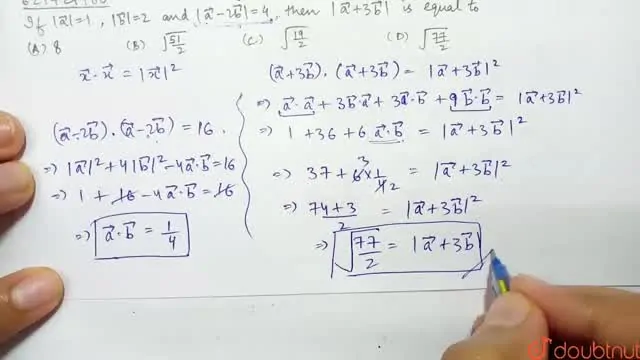 If |a⃗|=1, |b⃗|=2 and |a⃗-2b⃗|=4, then |a⃗+3b⃗| is equal to
(A) 8 (B) √(51/2) (C) √(19/2) (D) √(77/2)
x⃗·x⃗ = |x⃗|²
(a⃗-2b⃗)·(a⃗-2b⃗)=16.
⇒) |a⃗|²+4|b⃗|²-4a⃗·b⃗=16
⇒) 1+16-4a⃗·b⃗=16
⇒) a⃗·b⃗ = 1/4
(a⃗+3b⃗)·(a⃗+3b⃗) = |a⃗+3b⃗|²
⇒) a⃗·a⃗+3b⃗·a⃗+3a⃗·b⃗+9b⃗·b⃗ = |a⃗+3b⃗|²
⇒) 1+36+6a⃗·b⃗ = |a⃗+3b⃗|²
⇒) 37+6 3×1/4 2 = |a⃗+3b⃗|²
⇒) 74+3/2 = |a⃗+3b⃗|²
⇒) √(77/2) = |a⃗+3b⃗|
doubtnut